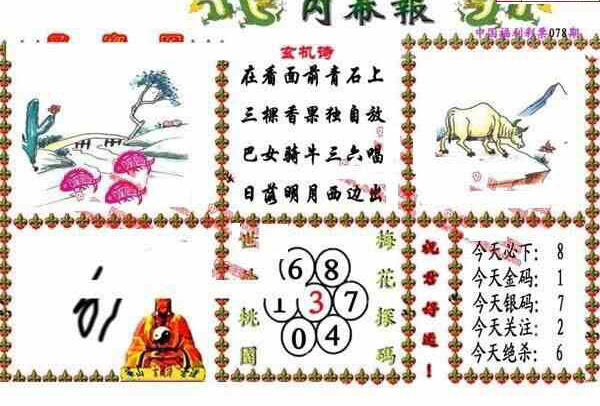 内幕報
中国福利彩票078期
玄机诗
在看面前青石上
三棵香果独自放
巴女骑牛三六唱
日落明月西边出
世
桃園
6 8
1 3 7
0 4
梅花探碼
祝君好運！
今天必下：8
今天金码：1
今天银码：7
今天关注：2
今天绝杀：6